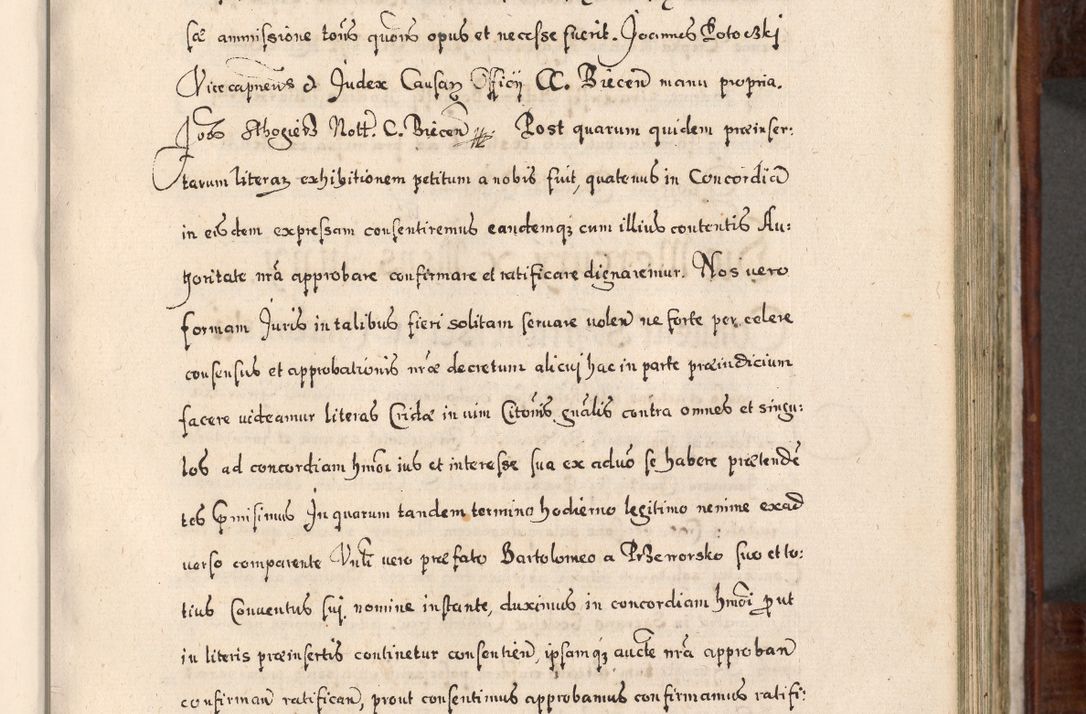 sæ ammissione toũs quoũs opus et necesse fuerit. Joannes Potoczki
Vicecapneũs & Judex Causarum Officii CC. Biecen̄ manu propria.
Nott. C. Biecen̄. Post quarum quidem præinser:
tarum literarum exhibitionem petitum a nobis fuit, quatenus in Concordiã
in eisdem expressam consentiremus eandemq; cum illius contentis Au:
thoritate nr̃a approbare confirmare et ratificare dignaremur. Nos vero
formam Juris in talibus fieri solitam servare volen̄ ne forte per celere
consensus et approbationis nr̃æ decretum alicuj hac in parte præiudicium
facere videamur literas Cridæ in vim Citõnis gnãlis contra omnes et singu:
los ad concordiam hmõi ius et interesse sua ex aduõ se habere prætendẽ
tes Emisimus In quarum tandem termino hodierno legitimo nemine exad
verso comparente Vnk̃ vero præfato Bartolomeo a Przeworsko suo et to:
tius Conventus suj nomine instante, duximus in concordiam hmõi put
in literis præinsertis continetur consentien̄, ipsamq; aucte nr̃a approban̄
confirman̄ ratifican̄, prout consentimus approbamus confirmamus ratifi: